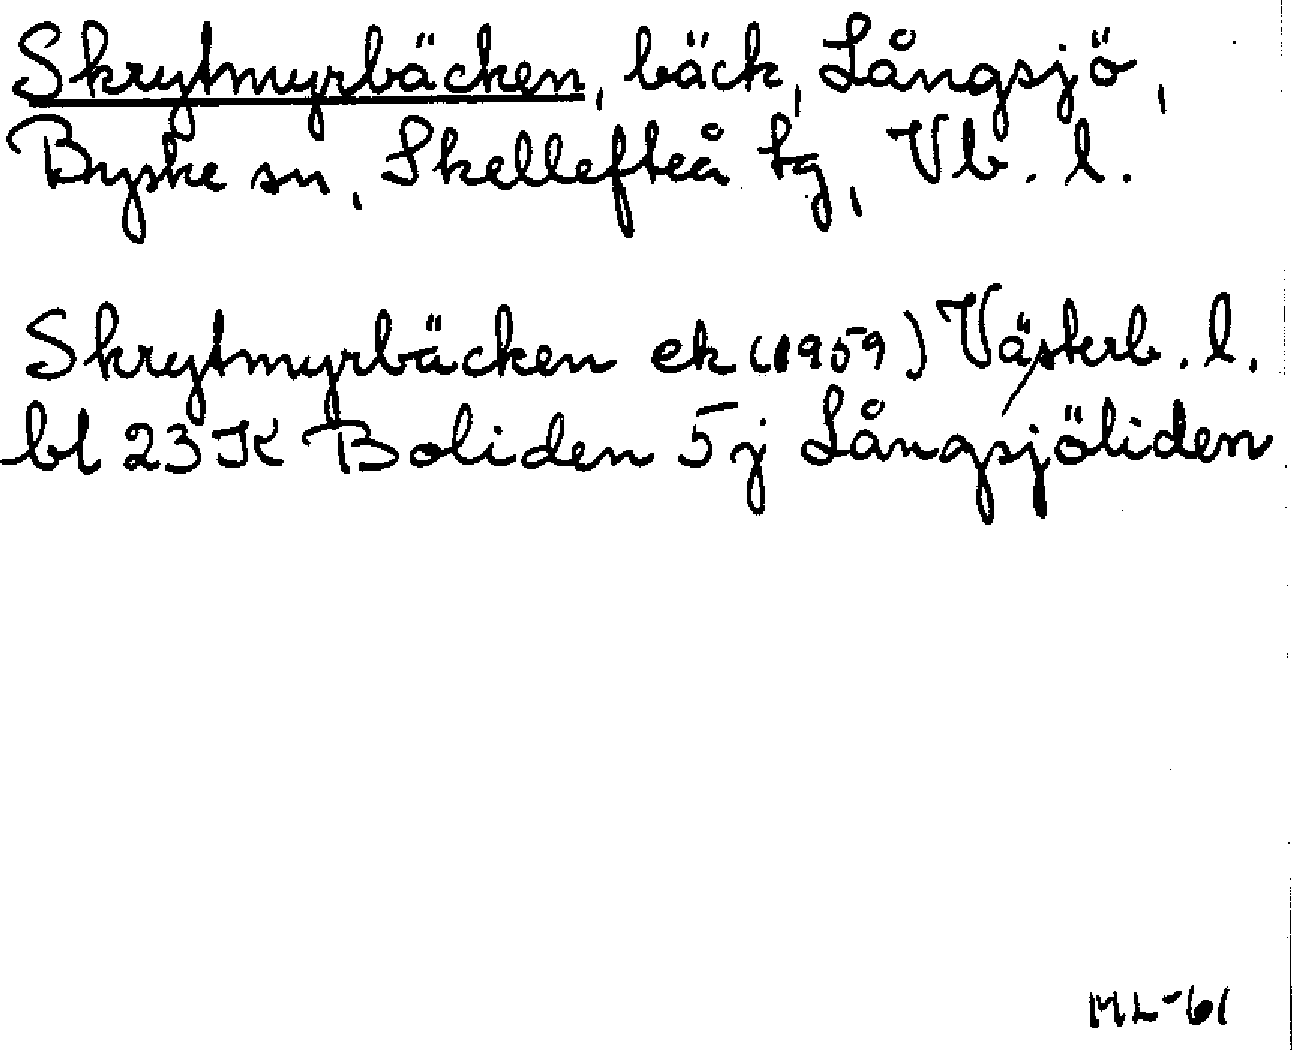 Skrytmyrbäcken, bäck, Långsjö,
Byske sn, Skellefteå tg, Vb. l.
Skrytmyrbäcken ek (1959) Västerb. l.
bl 23 K Boliden 5 j Långsjöliden
ML-61